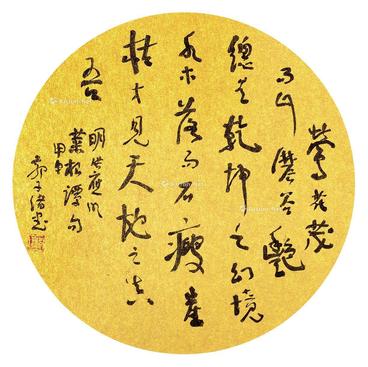 鶯花茂
而山濃谷艷
總是乾坤之幻境
水木落而石瘦崖
枯才見天地之真
吾
明洪應明
菜根譚句
甲午
郭子緒書